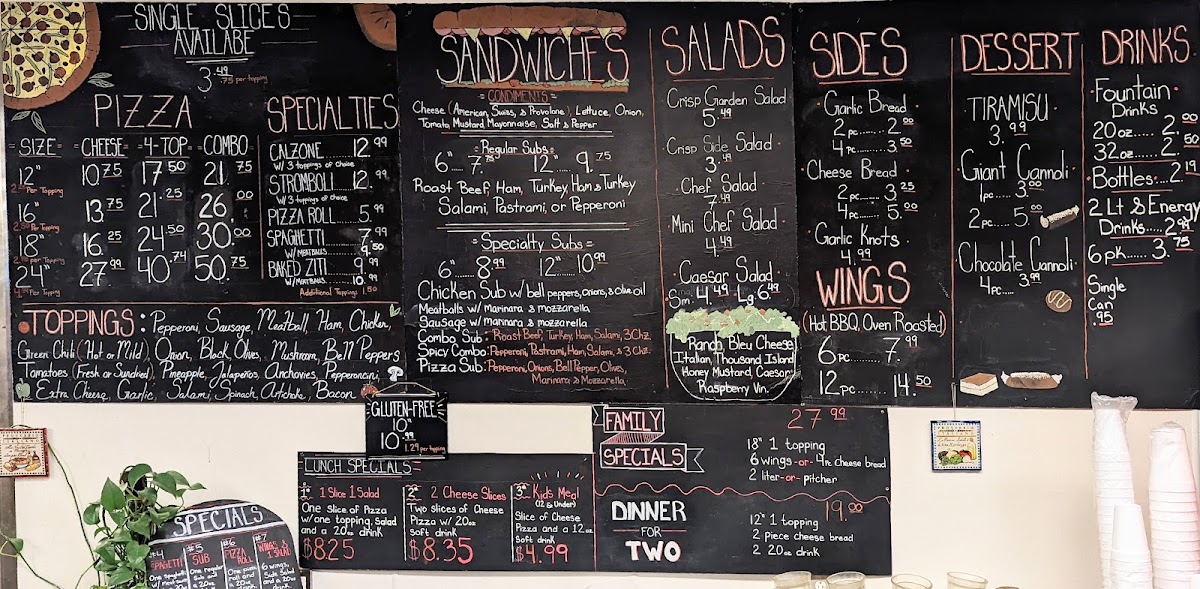 SINGLE SLICES
AVAILABE
3.49
.75 per topping
PIZZA
SIZE CHEESE 4-TOP COMBO
12" 10.75 17.50 21.75
Per Topping
16" 13.75 21.25 26.00
Per Topping
18" 16.25 24.50 30.00
Per Topping
24" 27.99 40.74 50.75
Per Topping
SPECIALTIES
CALZONE 12.99
W/ 3 toppings of choice
STROMBOLI 12.99
W/ 3 toppings of choice
PIZZA ROLL 5.99
SPAGHETTI 7.99
W/ MEATBALLS 9.50
BAKED ZITI 9.99
W/ MEATBALLS 10.99
Additional Toppings 1.50
TOPPINGS: Pepperoni, Sausage, Meatball, Ham, Chicken,
Green Chili (Hot or Mild), Onion, Black Olives, Mushroom, Bell Peppers
Tomatoes (Fresh or Sundried), Pineapple, Jalapeños, Anchovies, Pepperoncini,
Extra Cheese, Garlic, Salami, Spinach, Artichoke, Bacon
SANDWICHES
CONDIMENTS
Cheese (American, Swiss, & Provolone), Lettuce, Onion,
Tomato, Mustard, Mayonnaise, Salt & Pepper
Regular Subs
6" 7.75 12" 9.75
Roast Beef, Ham, Turkey, Ham & Turkey
Salami, Pastrami, or Pepperoni
Specialty Subs
6" 8.99 12" 10.99
Chicken Sub w/ bell peppers, onions, & Olive oil
Meatballs w/ marinara & mozzarella
Sausage w/ marinara & mozzarella
Combo Sub: Roast Beef, Turkey, Ham, Salami, 3 Chz.
Spicy Combo: Pepperoni, Pastrami, Ham, Salami, & 3 Chz.
Pizza Sub: Pepperoni, Onions, Bell Pepper, Olives,
Marinara & Mozzarella
SALADS
Crisp Garden Salad
5.49
Crisp Side Salad
3.49
Chef Salad
7.49
Mini Chef Salad
4.49
Caesar Salad
Sm. 4.49 Lg. 6.49
Ranch, Bleu Cheese
Italian, Thousand Island
Honey Mustard, Caesar
Raspberry Vin.
SIDES
Garlic Bread
2 pc 2.00
4 pc 3.50
Cheese Bread
2 pc 3.25
4 pc 5.00
Garlic Knots
4.99
WINGS
(Hot BBQ, Oven Roasted)
6 pc 7.99
12 pc 14.50
DESSERT
TIRAMISU
3.99
Giant Cannoli
1 pc 3.00
2 pc 5.00
Chocolate Cannoli
4 pc 3.99
DRINKS
Fountain
Drinks
20 oz 2.00
32 oz 2.50
Bottles 2.19
2 Lt & Energy
Drinks 2.99
6 pk 3.75
Single
Can
.95
GLUTEN-FREE
10"
10.99
1.29 per topping
LUNCH SPECIALS
1# 1 Slice 1 Salad
One slice of Pizza
w/ one topping, salad
and a 20oz drink
$8.25
2# 2 Cheese Slices
Two slices of Cheese
Pizza w/ 20oz
soft drink
$8.35
3# Kids Meal
(12 & Under)
Slice of Cheese
Pizza and a 12oz
Soft drink
$4.99
FAMILY
SPECIALS
27.99
18" 1 topping
6 wings -or- 4pc cheese bread
2 liter -or- pitcher
DINNER
FOR
TWO
19.00
12" 1 topping
2 piece cheese bread
2 20oz drink
SPECIALS
#4
SPAGHETTI
One spaghetti
#5
SUB
One regular
Sub and
a 20oz
#6
PIZZA
ROLL
One pizza
roll and
a 20oz
#7
WINGS &
1 SALAD
6 wings,
Side Salad
and a 20oz